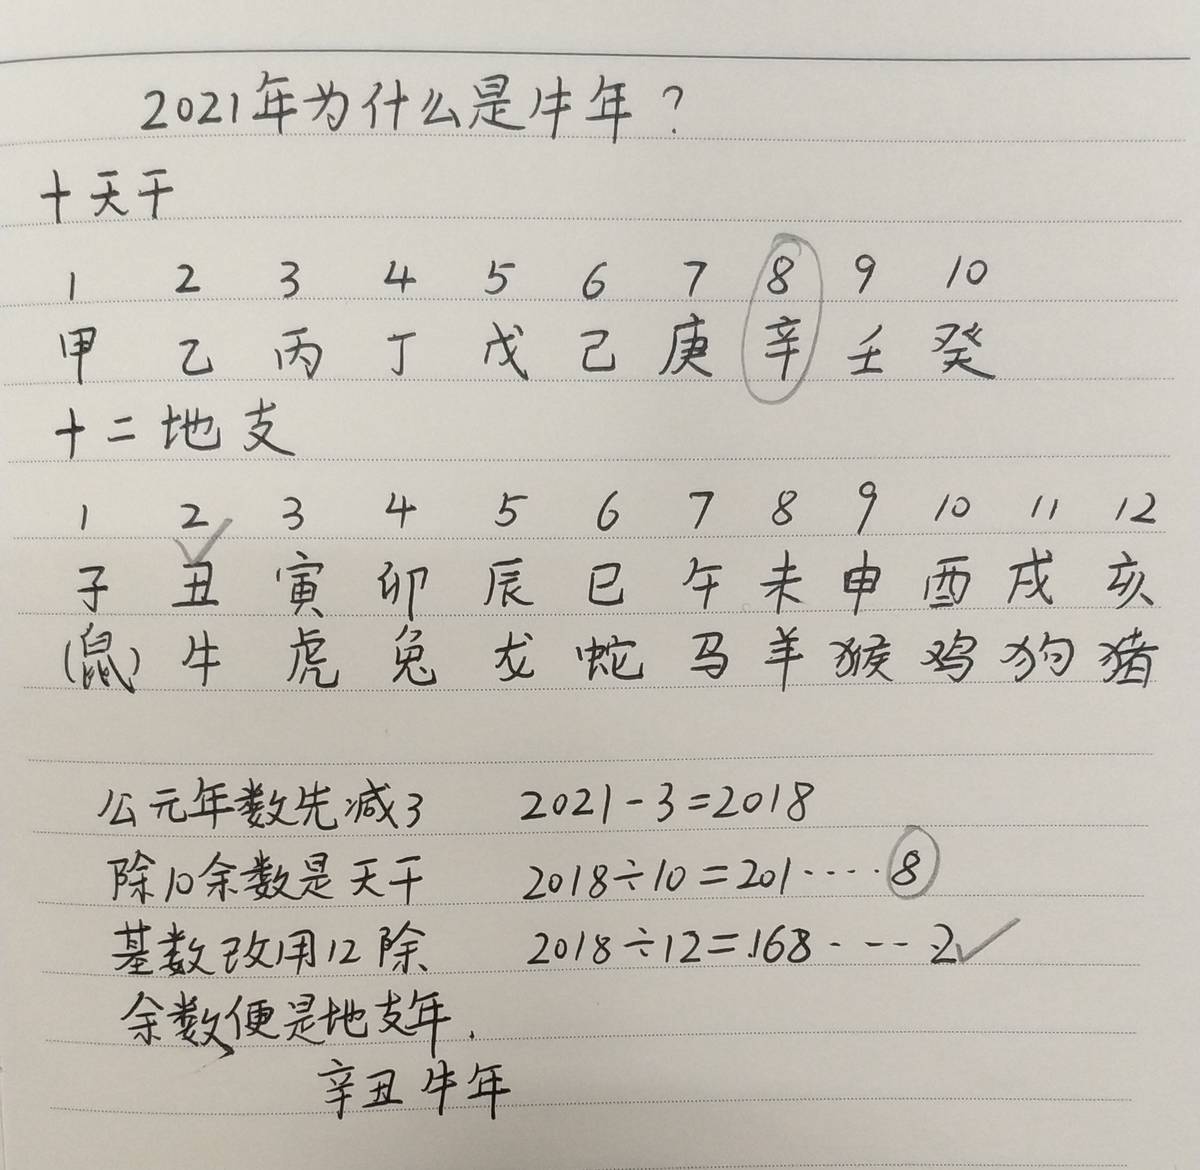 2021年为什么是牛年？
十天干
1 2 3 4 5 6 7 8 9 10
甲 乙 丙 丁 戊 己 庚 辛 壬 癸
十二地支
1 2 3 4 5 6 7 8 9 10 11 12
子 丑 寅 卯 辰 巳 午 未 申 酉 戌 亥
(鼠) 牛 虎 兔 龙 蛇 马 羊 猴 鸡 狗 猪
公元年数先减3 2021-3=2018
除10余数是天干 2018÷10=201‥‥8
基数改用12除 2018÷12=168‥‥2
余数便是地支年.
辛丑牛年